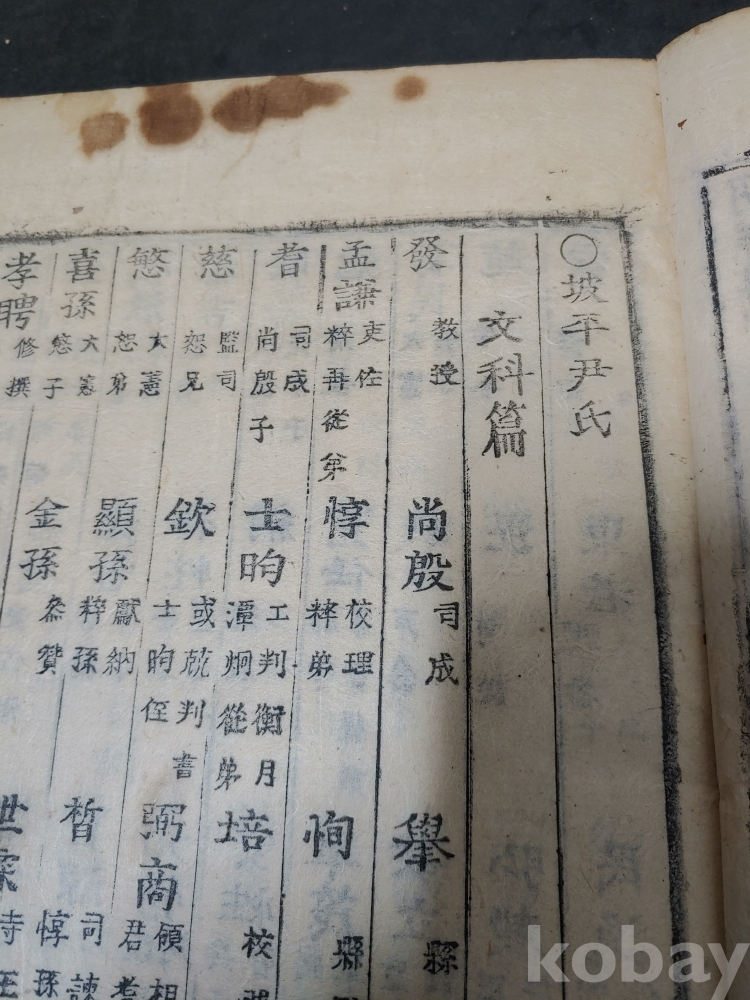 ○坡平尹氏
文科篇
發 教授 尚殷 司成 擧 縣
孟謙 吏佐 粹再從弟 惇 校理 粹弟 恂 縣
耆 司成 尚殷子 士昀 工判衡月 潭炯從弟 培 校
慈 監司 恕兄 欽 或兢判書 士昀侄 弼商 領相 君
慜 大憲 恕弟 顯孫 獻納 粹孫 晳 司諫 惇孫
喜孫 大憲 慜子 金孫 叅贊 世 寺正
孝聘 修撰
kobay